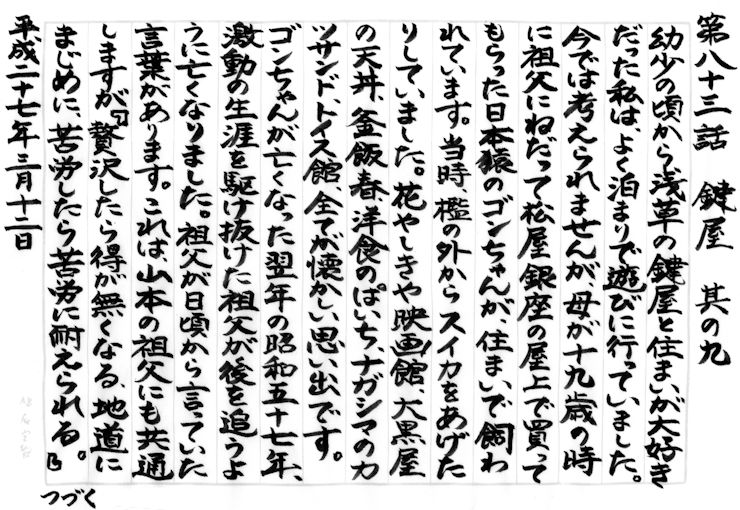 第八十三話　鍵屋　其の九
幼少の頃から浅草の鍵屋と住まいが大好き
だった私は、よく泊まりで遊びに行っていました。
今では考えられませんが、母が十九歳の時
に祖父にねだって松屋銀座の屋上で買って
もらった日本猿のゴンちゃんが、住まいで飼わ
れています。当時、檻の外からスイカをあげた
りしていました。花やしきや映画館、大黒屋
の天丼、釜飯春、洋食のぱいち、ナガシマのカ
ツサンド、トイス館、全てが懐かしい思い出です。
ゴンちゃんが亡くなった翌年の昭和五十七年、
激動の生涯を駆け抜けた祖父が後を追うよ
うに亡くなりました。祖父が日頃から言っていた
言葉があります。これは山本の祖父にも共通
しますが、「贅沢したら得が無くなる、地道に
まじめに、苦労したら苦労に耐えられる。」
平成二十七年三月十二日
つづく